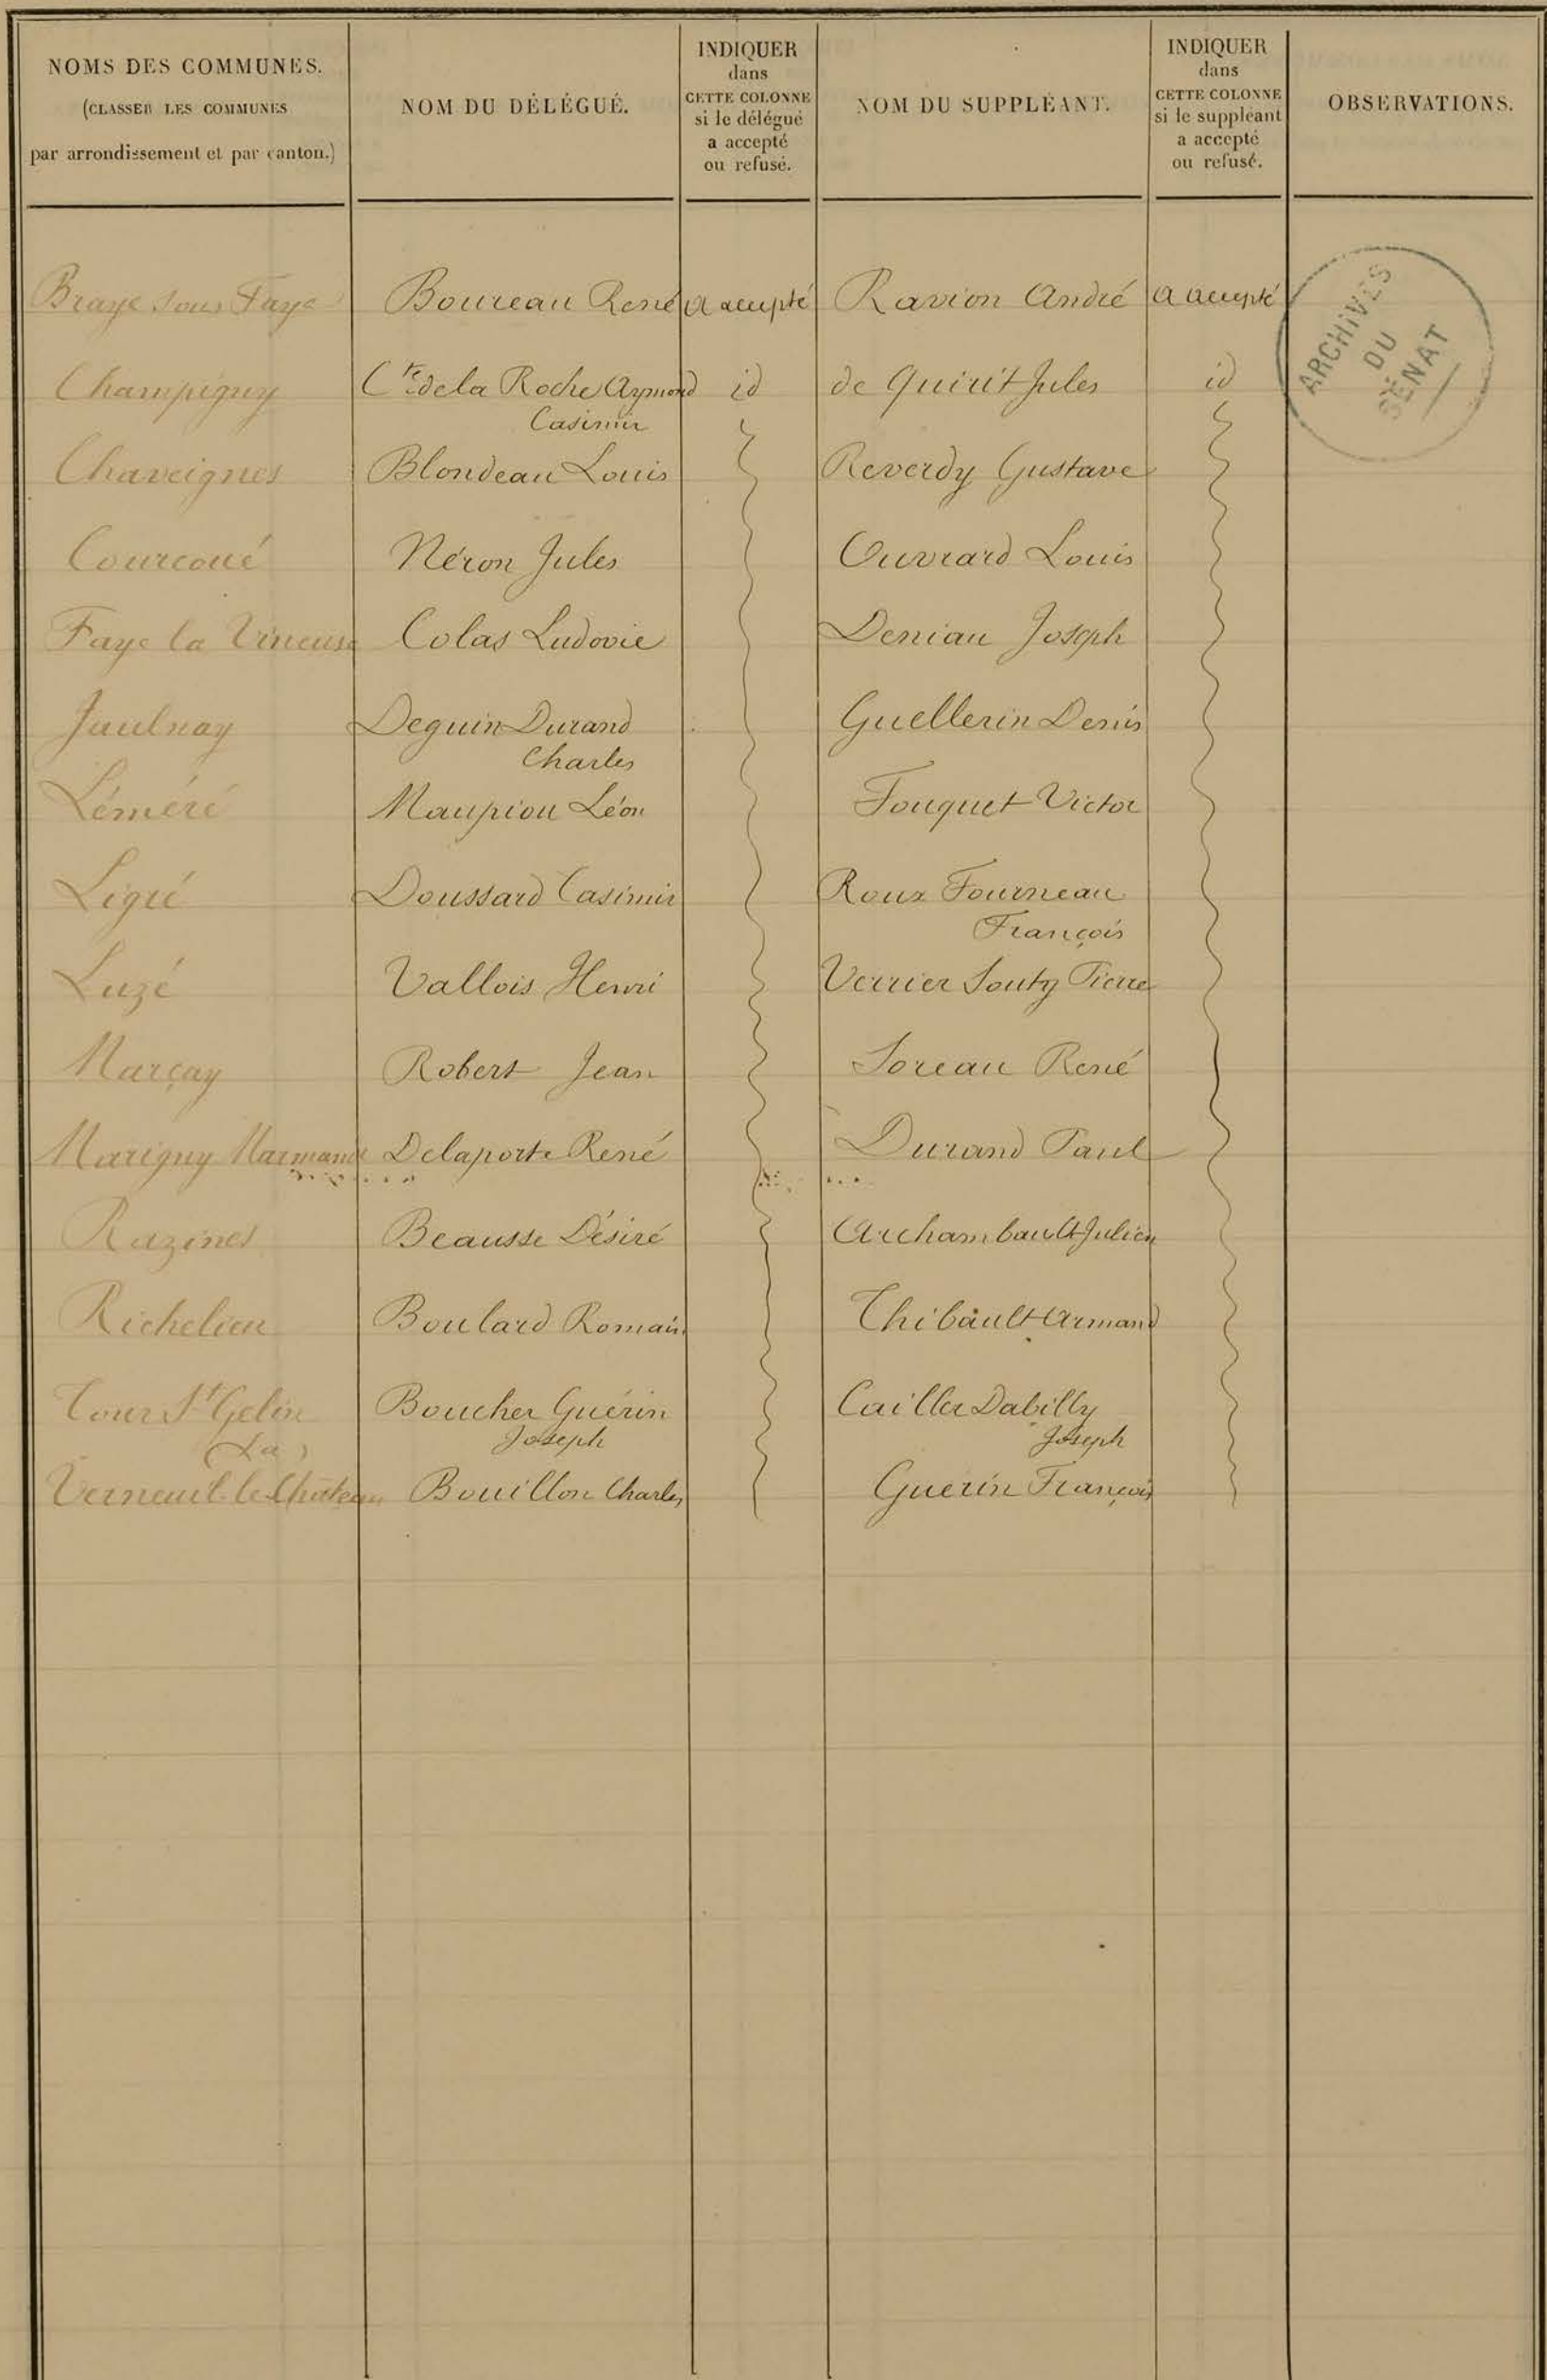 NOMS DES COMMUNES.
(CLASSER LES COMMUNES
par arrondissement et par canton.)
NOM DU DÉLÉGUÉ.
INDIQUER
dans
CETTE COLONNE
si le délégué
a accepté
ou refusé.
NOM DU SUPPLÉANT.
INDIQUER
dans
CETTE COLONNE
si le suppléant
a accepté
ou refusé.
OBSERVATIONS.
Braye sous Faye Boureau René a accepté Ravion André a accepté
ARCHIVES
DU
SÉNAT
Champigny Cte de la Roche Aymond id de Quirit Jules id
Casimir
Chaveignes Blondeau Louis Reverdy Gustave
Courcoué Néron Jules Ouvrard Louis
Faye la Vineuse Colas Ludovic Deniau Joseph
Jaulnay Deguin Durand Guellerin Denis
Charles
Léméré Maupiou Léon Fouquet Victor
Ligré Doussard Casimir Roux Fourneau
François
Luzé Vallois Henri Verrier Souty Pierre
Marçay Robert Jean Soreau René
Marigny Marmande Delaporte René Durand Paul
Razines Beausse Désiré Archambault Julien
Richelieu Boulard Romain Thibault Armand
Tour St Gelin Boucher Guérin Cailler Dabilly
(La) Joseph Joseph
Verneuil le Château Bouillon Charles Guerin François